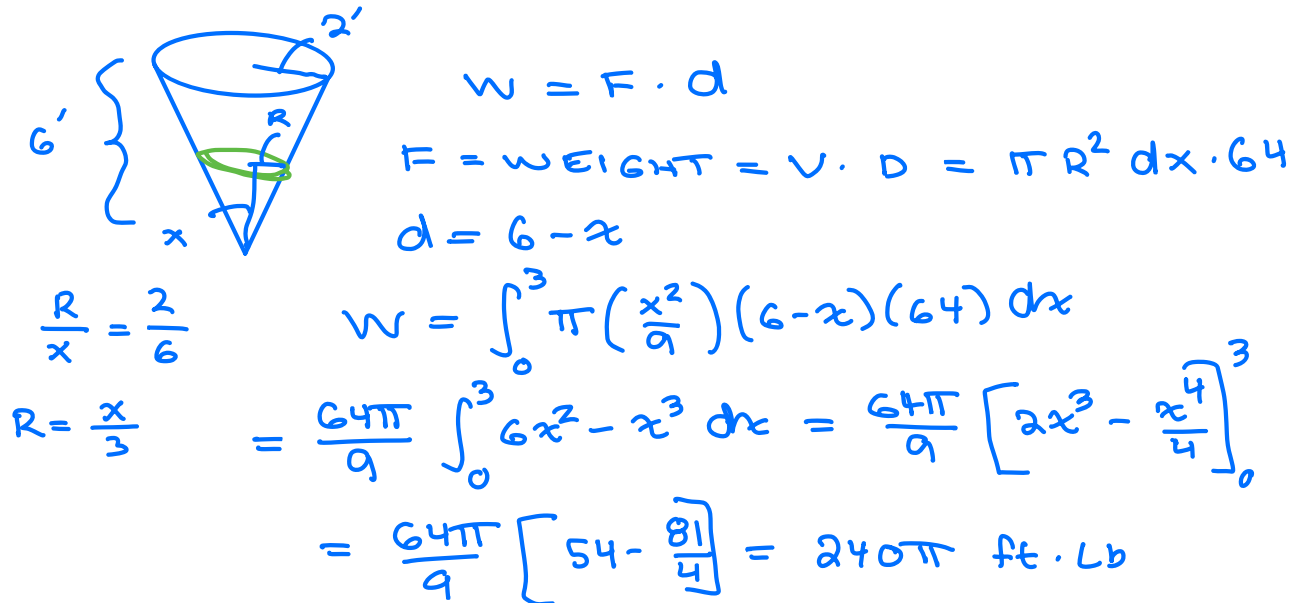 2'
6'
R
x
W = F · d
F = WEIGHT = V · D = π R² dx · 64
d = 6 - x
R/x = 2/6
W = ∫₀³ π (x²/9) (6-x) (64) dx
R = x/3
= 64π/9 ∫₀³ 6x² - x³ dx = 64π/9 [2x³ - x⁴/4]₀³
= 64π/9 [54 - 81/4] = 240π ft · Lb